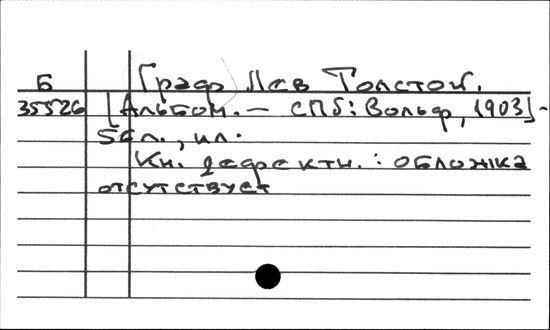 Б
Граф Лев Толстой.
35526 [Альбом. — СПб: Вольф, 1903]-
56л., ил.
Кн. дефектн.: обложка
отсутствует